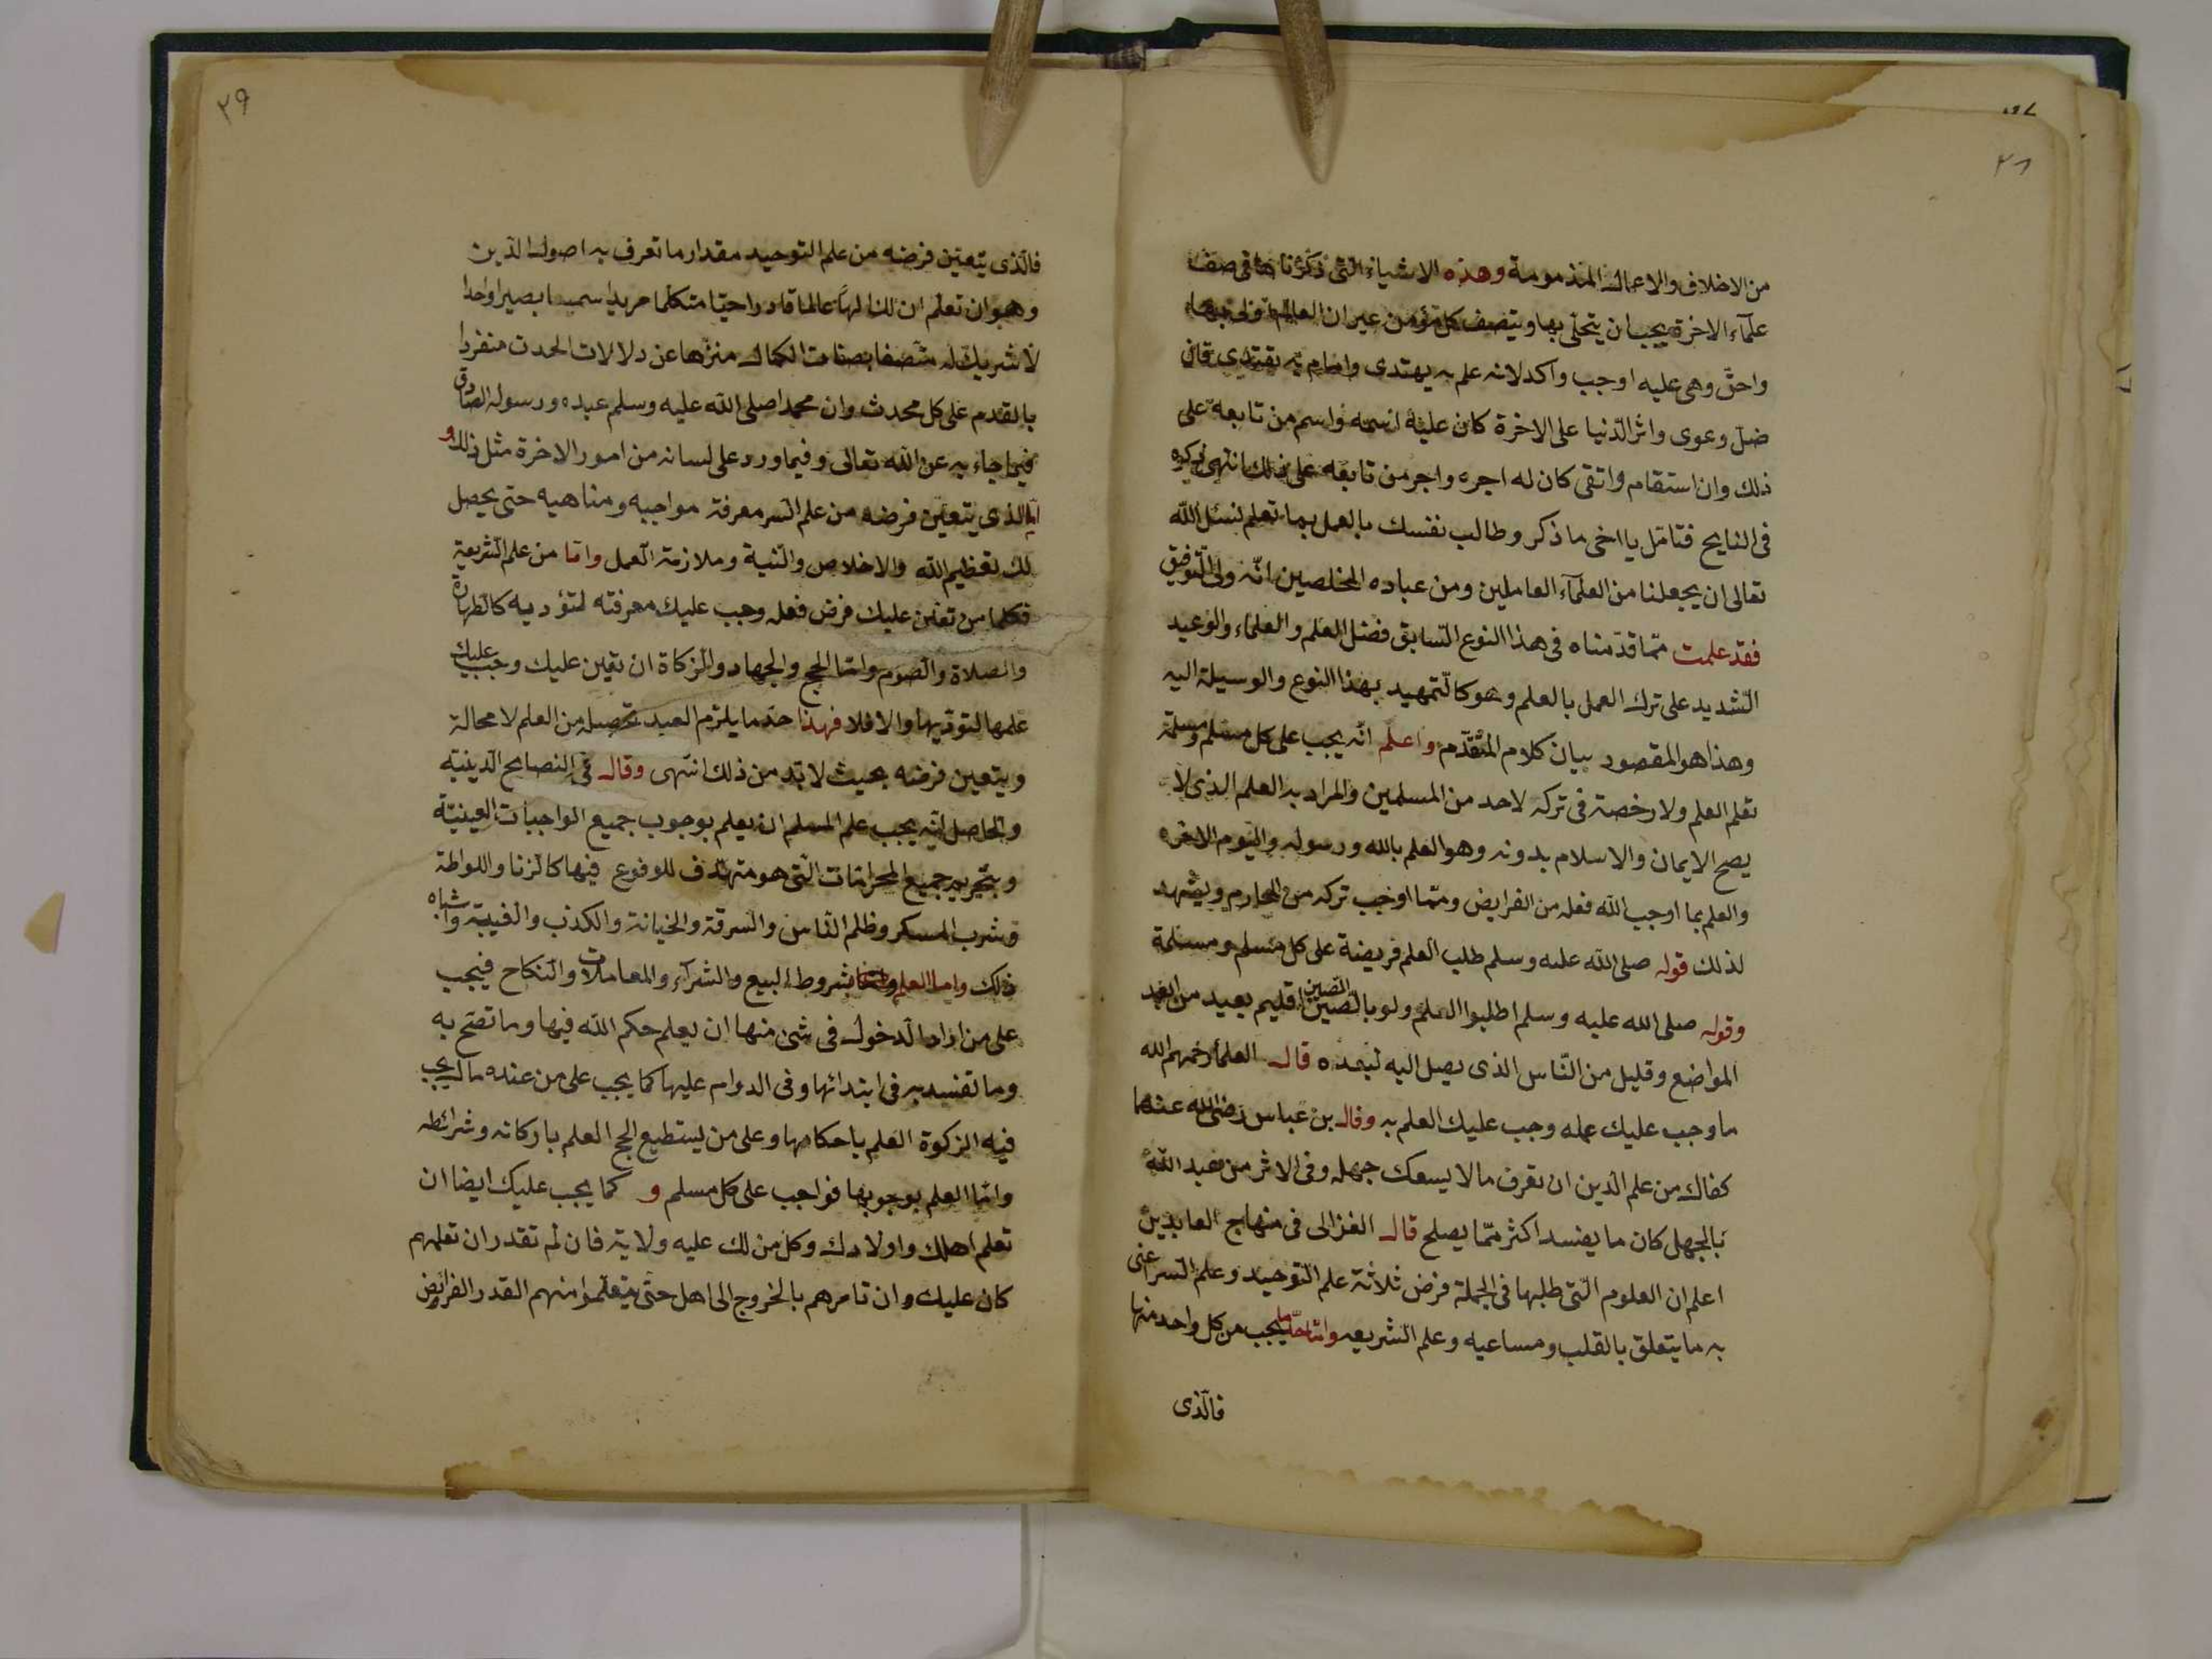 ٢٨
من الاخلاق والاعمال المذمومة وهذه الاشياء التى ذكرنا ها فى صف
علمآء الاخرة يجب ان يتحلّى بها ويتصف كل مؤمن غير ان العالم اولى بها
واحقّ وهى عليه اوجب وآكد لانه علم به يهتدى وامام به يقتدى فان
ضلّ وغوى واثر الدّنيا على الاخرة كان عليه اثمه واسم من تابعه على
ذلك وان استقام واتقى كان له اجره واجر من تابعه على ذلك انتهى
فى النايح فتامّل يا اخى ما ذكر وطالب نفسك بالعمل بما تعلم نسئل اللّه
تعالى ان يجعلنا من العلمآء العاملين ومن عباده المخلصين انّه ولىّ التّوفيق
فقد علمت ممّا قدّمناه فى هذا النوع السّابق فضل العلم والعلماء والوعيد
الشديد على ترك العمل بالعلم وهو كالتّمهيد بهذا النوع والوسيلة اليه
وهذا هو المقصود ببيان كلام المتقدّم واعلم انّه يجب على كل مسلم ومسلمة
تعلم العلم ولا رخصة فى تركه لاحد من المسلمين والمراد به العلم الذى لا
يصح الايمان والاسلام بدونه وهو العلم بالله ورسوله واليوم الاخره
والعلم بما اوجب اللّه فعله من الفرايض وممّا اوجب تركه من المحارم ويشهد
لذلك قوله صلى اللّه عليه وسلم طلب العلم فريضة على كل مسلم ومسلمة
وقوله صلى الله عليه وسلم اطلبوا العلم ولو بالصّين الصّين اقليم بعيد من ابعد
المواضع وقليل من النّاس الذى يصل اليه لبعده قال العلمآء رحمهم الله
ما وجب عليك عمله وجب عليك العلم به وقال بن عباس رضى الله عنهما
كفاك من علم الدّين ان تعرف مالا يسعك جهله وفى الاثر من عبد اللّه
بالجهل كان ما يفسد اكثر ممّا يصلح قال الغزالى فى منهاج العابدين
اعلم ان العلوم الّتى طلبها فى الجملة فرض ثلاثة علم التّوحيد وعلم السّر اعنى
به ما يتعلق بالقلب ومساعيه وعلم الشريعه وامّا حدّ ما يجب من كل واحد منها
فالّذى
٢٩
فالّذى يتعيّن فرضه من علم التوحيد مقدار ما تعرف به اصول الدّين
وهو ان تعلم ان لك الهًا عالما قادرا حيّا متكلما مريدا سميعا بصيرا واحدا
لا شريك له متّصفا بصفات الكمال منزّها عن دلالات الحدث منفردا
بالقدم على كل محدث وان محمدا صلى اللّه عليه وسلم عبده ورسوله الصّادق
فيما جاء به عن اللّه تعالى وفيما ورد على لسانه من امور الاخرة مثل ذلك و
امّا الذى يتعيّن فرضه من علم السّر معرفة مواجبه ومناهيه حتى يحصل
لك تعظيم اللّه والاخلاص والنّية وملازمة العمل وامّا من علم الشّريعة
فكلما من تعيّن عليك فرض فعله وجب عليك معرفته لتؤديه كالطهارة
والصلاة والصّوم وامّا الحج والجهاد والزكاة ان تعين عليك وجب عليك
علمها لتؤدّيها والا فلا فهذا حدّ ما يلزم العبد تحصيله من العلم لا محالة
ويتعين فرضه بحيث لا بّد من ذلك انتهى وقال فى النصايح الدّينيّه
والحاصل انّه يجب علم المسلم ان يعلم بوجوب جميع الواجبات العينيّة
وبتحريم جميع المحرامات الّتى هو متهدّف للوقوع فيها كالزنا واللواطة
وشرب المسكر وظلم النّاس والسرقة والخيانة والكذب والغيبة واشباه
ذلك واما العلم بشروط البيع والشرآء والمعاملات والنكاح فيجب
على من اراد الدخول فى شئ منها ان يعلم حكم اللّه فيها وما تصّح به
وما تفسد به فى ابتدائها وفى الدوام عليها كما يجب على من عنده مال يجب
فيه الزكوة العلم باحكامها وعلى من يستطيع الحج العلم باركانه وشرائطه
وامّا العلم بوجوبها فواجب على كل مسلم و كما يجب عليك ايضا ان
تعلم اهلك واولادك وكل من لك عليه ولاية فان لم تقدر ان تعلمهم
كان عليك وان تامرهم بالخروج الى اهل حتّى يتعلّموا منهم القدر الفرايض